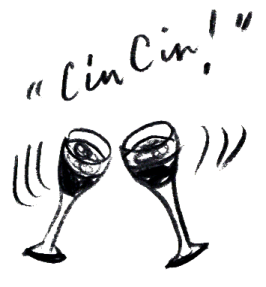 "Cin Cin!"